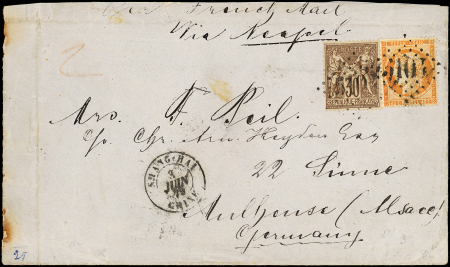 Via French Mail
Via Neapel
5104
Mrs. A. Beil.
C/o. Chr. Am. Heyden Esq
22 Sinne
Mulhouse (Alsace)
Germany
SHANG-HAI
3
JUIN
79
CHINE